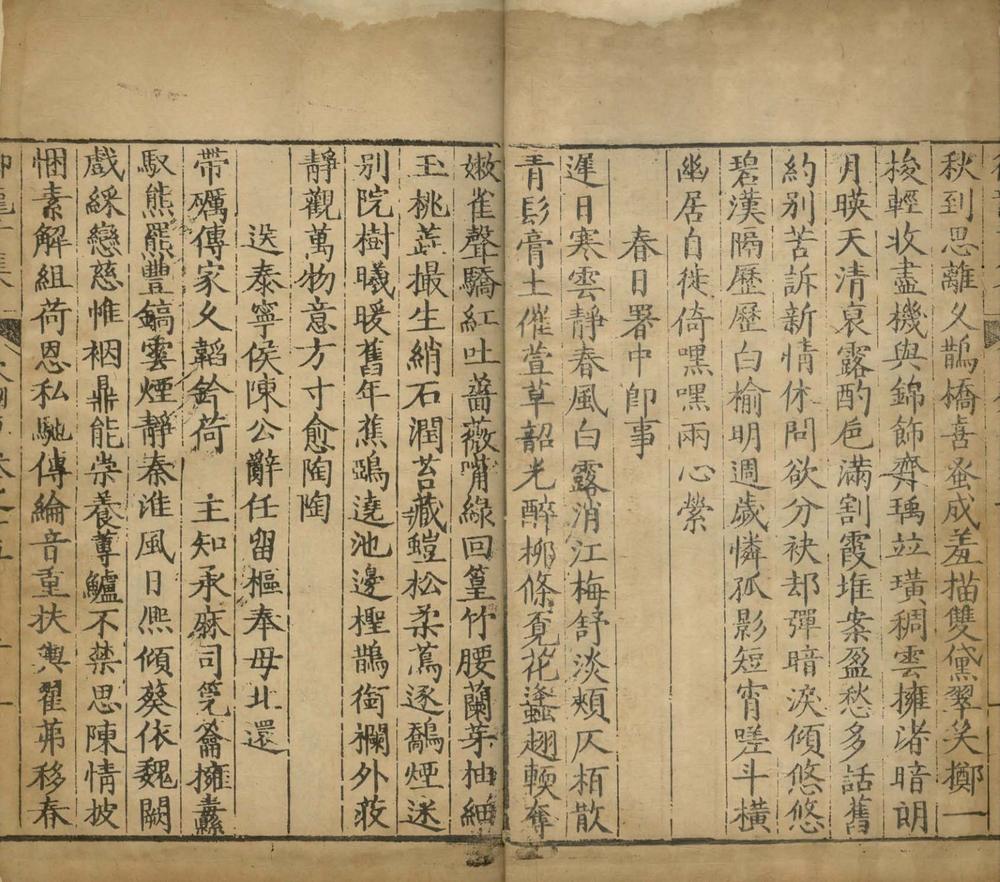 秋到思離久鵲橋喜蚤成羞描雙黛翠笑擲一
梭輕收盡機與錦飾齊瑀竝璜稠雲擁渚暗朗
月暎天清哀露酌卮滿割霞堆案盈愁多話舊
約別苦訴新情休問欲分袂却彈暗淚傾悠悠
碧漢隔歷歷白榆明週歲憐孤影短宵嗟斗橫
幽居自徙倚嘿嘿兩心縈
春日署中即事
遲日寒雲靜春風白露消江梅舒淡頰仄栢散
青髟膏土催萱草韶光醉柳條覔花蠭翅輭奪
嫩雀聲驕紅吐薔薇嘴綠回篁竹腰蘭芽柚細
玉桃蕋撮生綃石潤苔藏螘松柔蔦逐鷮煙迷
別院樹曦暖舊年蕉鷗遶池邊檉鵲銜襴外菽
靜觀萬物意方寸愈陶陶
送泰寧侯陳公辭任留樞奉母北還
帶礪傳家久韜鈐荷 主知承麻司筦龠擁纛
馭熊羆豐鎬雲煙靜秦淮風日熈傾葵依魏闕
戲綵戀慈惟裀鼎能崇養蓴鱸不禁思陳情披
悃素解組荷恩私馳傳綸音重扶輿翟茀移春